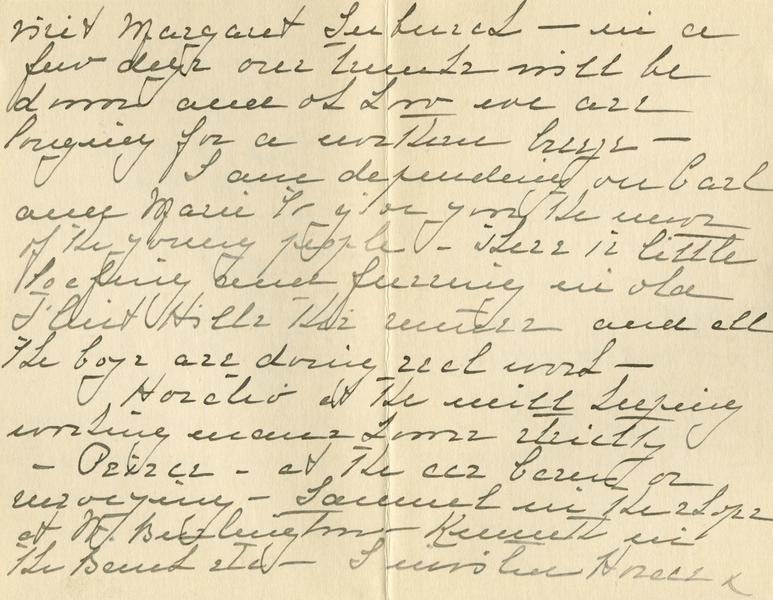 visit Margaret Suburch — in a
few days our trunks will be
down and at two we are
longing for a northern breeze —
I am depending on Carl
and Marie to give you the news
of the young people - There is little
loafing and funning in old
Flint Hills this summer and all
the boys are doing real work —
Horatio at the mill keeping
working man's hours strictly
- Peirce - at the car barns or
surveying - Samuel in the shops
at W. Burlington - Kenneth in
the Bank etc —